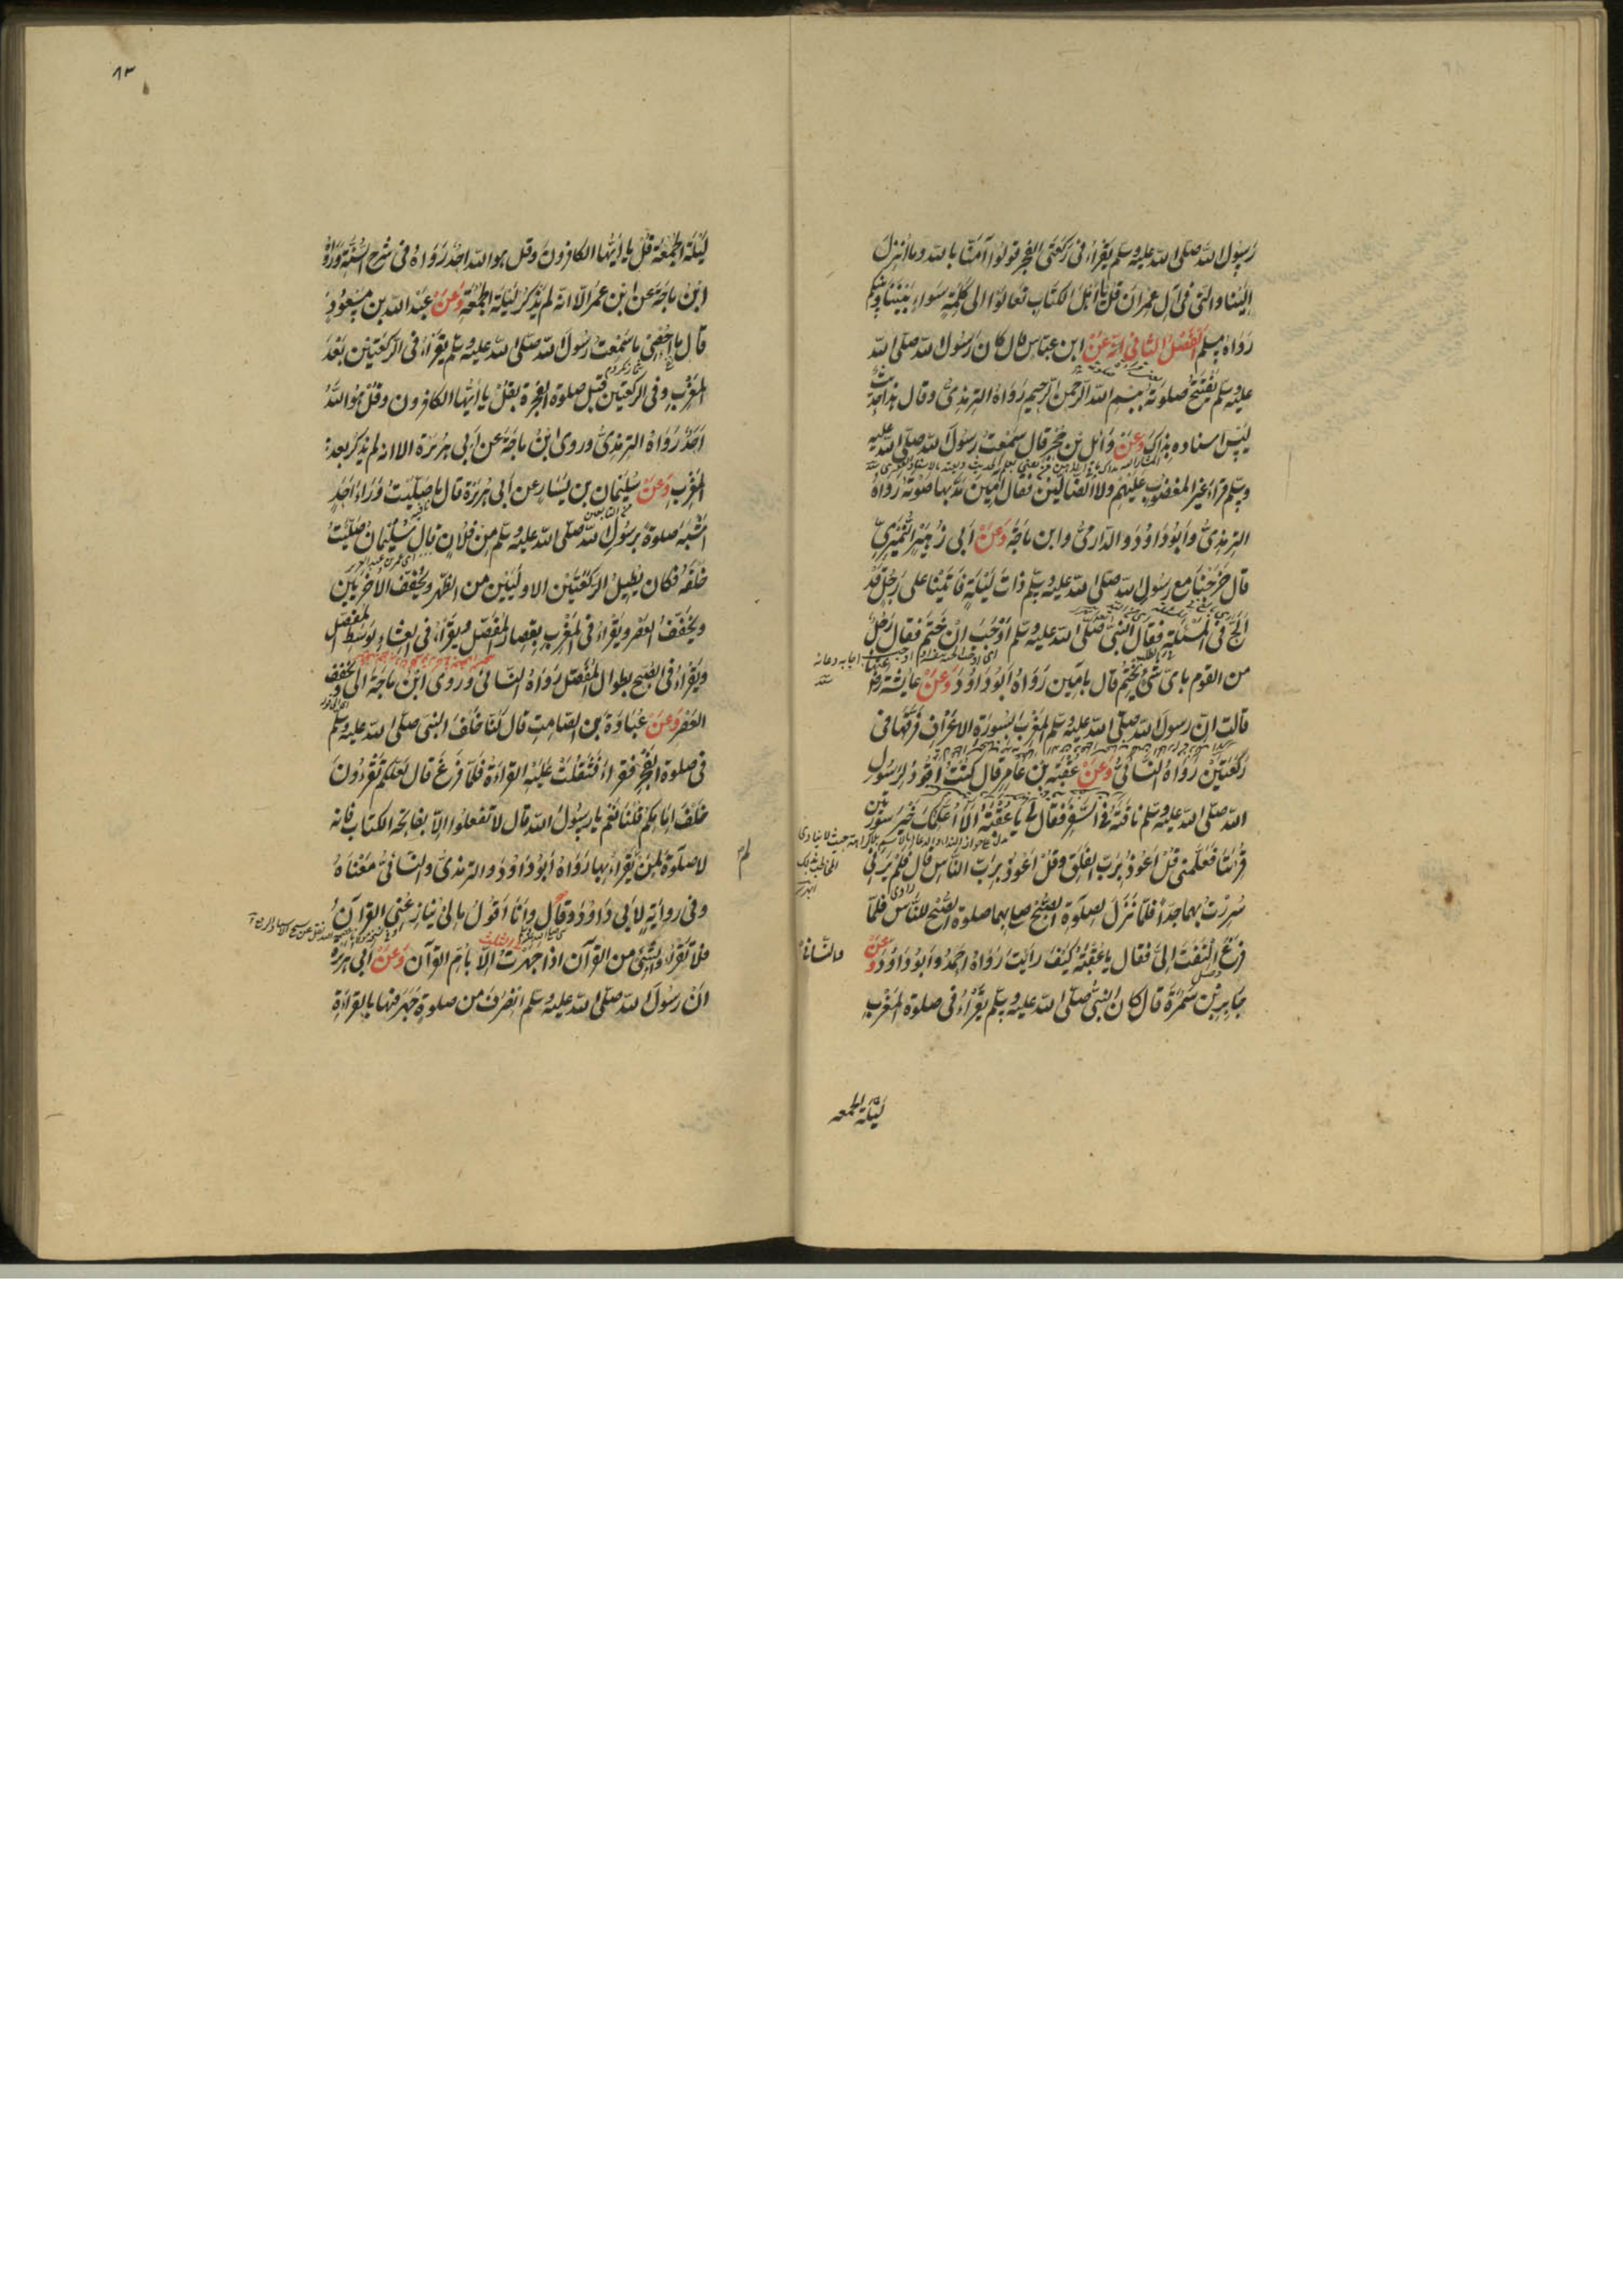 رَسُول اللّٰه صلى اللّٰه عليه وسلم يقْرَاءُ فى رَكعَتى الفجر قولوُا آمَنّا باللّٰه وما اُنزِلَ
اِلَيْنا والتى فى آل عِمْرَان قل يا اَهْل الكتاب تعَالوَا الى كَلِمَةٍ سَوَاءٍ بَيْنَنَا وبينكم
رَوَاهُ مسلم الفَصْلُ الثانى عَنْ ابن عباس قال كانَ رَسُول اللّٰه صلى اللّٰه
عليْه وسلم يَفْتَتِحُ صَلوتَهُ ببسم اللّٰه الرحمن الرحيم رَوَاهُ الترمذىُّ وقال هذا حديث
ليْسَ اسناده بِذاكَ وَعَنْ وَائل بْن حُجْر قال سَمعْتُ رَسُولَ اللّٰه صلى اللّٰه عليه
وسلم قرَاءَ غيْر المغضُوب عليْهِمْ ولا الضّالّينَ فقَال آمينَ مَدَّ بهَا صَوْتَهُ رَوَاهُ
الترمذىُّ وأبوُدَاوُدَ والدّارمىُّ وابن ماجَهْ وَعَنْ أبى زُهَيْرٍ النُّمَيْرِىِّ
قال خَرَجْنَا مع رسُول اللّٰه صلى اللّٰه عليه وسلم ذاتَ ليْلَةٍ فَاَتَيْنَا على رَجُلٍ قَدْ
اَلَحَّ فى المَسْئلَةِ فقَال النبىُّ صلى اللّٰه عليه وسلم أوْجَبَ اِنْ خَتَمَ فقال رَجُلٌ
من القوم باىّ شىْءٍ يَخْتِمُ قال بآمِينَ رَوَاهُ أبُودَاوُدَ وَعَنْ عايشة رض
قالت انّ رسولَ اللّٰه صلى اللّٰه عليه وسلم صلّى المغْرِبَ بسُورَةِ الاعْرَافِ فَرَّقَهَا فى
رَكعَتَيْن رَوَاهُ النّسَائىُّ وَعَنْ عُقْبَة بْن عَامِر قال كنْتُ أقُودُ لِرَسُول
اللّٰه صلى اللّٰه عليه وسلم ناقتَهُ فى السَّفَر فقَال لى يا عُقْبَةُ اَلاَ اُعَلِّمُكَ خَيْرَ سُورَتَين
قُرِئتَا فَعَلَّمَنى قُلْ اَعُوْذُ بِرَبّ الفلق وقُلْ اعُوذُ بِرَبّ النّاس قال فَلمْ يَرَنى
سُرِرْتُ بهما جِدّاً فلمّا نَزَلَ لِصلوَةِ الصُّبْح صلى بهما صلوة الصُّبْح للنّاس فلمّا
فرَغَ الْتَفَتَ اِلىَّ فقَال يا عُقْبَةُ كَيْفَ رَأيْتَ رَوَاهُ احْمَدُ وَأبُودَاوُدَ وعَنْ
والنّسَائىُّ
جَابِر بْن سَمُرَةَ قال كانَ النبىُّ صلى اللّٰه عليه وسلم يَقْرَاءُ فى صلوة المغْرِبِ
لَيْلَةَ الجمعه
٨٣
لَيْلَة الجُمعَة قُلْ يا أيّها الكافرُونَ وقُل هو اللّٰه احَدٌ رَوَاهُ فى شرح السُّنَّة وَرَوَاهُ
ابْنُ مَاجَهْ عَن ابْن عمَر الاّ انّه لم يَذْكُرْ لَيْلَةَ الجُمعَةِ وَعَنْ عَبْد اللّٰه بن مَسْعُودٍ
قال ما أحْصِىْ ما سَمِعْتُ رَسُول اللّٰه صلى اللّٰه عليه وسلم يَقْرَاءُ فى الرّكعَتَيْن بَعْدَ
المَغْرِبِ وفى الركعَتيْن قبْل صلوة الفجْر بقُلْ يا أيُّها الكافرون وقُلْ هُوَ اللّٰهُ
اَحَدٌ رَوَاهُ الترمذىُّ وروى ابْنُ ماجَهْ عن أبى هُرَيْرَة الا انه لم يذكر بعد
المَغْرِب وَعَنْ سُلَيْمَان بن يَسَارٍ عن أبى هُرَيْرَة قال ما صَلّيْتُ وَرَاءَ اَحَدٍ
اَشْبَهَ صلوةً بِرَسُول اللّٰه صلى اللّٰه عليه وسلم من فلان قال سُلَيْمَانُ صَلّيْتُ
خَلْفَهُ فكان يُطِيلُ الرّكعَتَيْن الاوليَيْن من الظهر ويُخَفِّفُ الاُخْرَيَيْن
ويُخَفِّفُ العَصْر ويَقْرَاءُ فى المغْرِبِ بقِصَار المُفَصّل ويَقْرَاءُ فى العِشَاءِ بوَسَط المُفَصّل
ويَقْرَاءُ فى الصُّبْح بطِوَال المُفَصّل رَوَاهُ النّسَائى وَرَوى ابْنُ مَاجَةْ الى ويُخَفِّف
العَصْر وَعَنْ عُبَادَةَ بن الصّامِتِ قال كُنّا خَلْفَ النبى صلى اللّٰه عليه وسلم
فى صلوة الفَجْر فقَرَاءَ فَثَقُلَتْ عَليْهِ القِرَاءَةُ فلمّا فَرَغَ قال لعَلّكُمْ تَقْرَءُونَ
خَلْفَ اِمَامِكُمْ قُلْنَا نَعَمْ يا رَسُولَ اللّٰه قال لا تفعلوا اِلاّ بفَاتِحة الكتاب فانه
لا صلوَةَ لِمَنْ لم يَقْرَاءْ بها رَوَاهُ أبُودَاوُدَ والترمذىُّ والنّسَائىُّ مَعْنَاهُ
لم
وفى رِوَايَةٍ لأبى دَاوُدَ قال وَاَنا اَقُولُ مَا لى يُنَازِعُنِى القرآنُ
فلا تَقْرَؤُا بشَىْءٍ من القرآن اذا جَهَرْتُ اِلاّ بأُمّ القرآن وَعَنْ أبى هُرَيْرَة
انّ رَسُولَ اللّٰه صلى اللّٰه عليه وسلم انْصَرَفَ من صلوةٍ جَهَرَ فيها بالقِرَاءَةِ